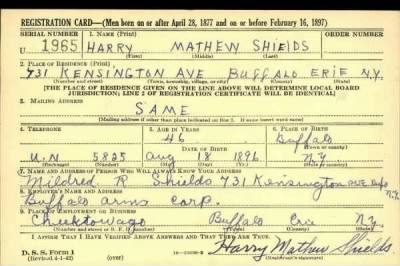 REGISTRATION CARD—(Men born on or after April 28, 1877 and on or before February 16, 1897)
SERIAL NUMBER 1. NAME (Print) ORDER NUMBER
U 1965 HARRY MATHEW SHIELDS
(First) (Middle) (Last)
2. PLACE OF RESIDENCE (Print)
731 KENSINGTON AVE BUFFALO ERIE N.Y.
(Number and street) (Town, township, village, or city) (County) (State)
[THE PLACE OF RESIDENCE GIVEN ON THE LINE ABOVE WILL DETERMINE LOCAL BOARD
JURISDICTION; LINE 2 OF REGISTRATION CERTIFICATE WILL BE IDENTICAL]
3. MAILING ADDRESS
SAME
(Mailing address if other than place indicated on line 2. If same insert word same)
4. TELEPHONE 5. AGE IN YEARS 6. PLACE OF BIRTH
46 Buffalo
DATE OF BIRTH (Town or county)
U.N 5825 Aug 18 1896 N.Y.
(Exchange) (Number) (Mo.) (Day) (Yr.) (State or country)
7. NAME AND ADDRESS OF PERSON WHO WILL ALWAYS KNOW YOUR ADDRESS
Mildred R Shields 731 Kensington ave N.Y.
8. EMPLOYER'S NAME AND ADDRESS
Buffalo arms Corp.
9. PLACE OF EMPLOYMENT OR BUSINESS
Cheektowago Buffalo Erie N.Y.
(Number and street or R. F. D. number) (Town) (County) (State)
I AFFIRM THAT I HAVE VERIFIED ABOVE ANSWERS AND THAT THEY ARE TRUE.
D. S. S. Form 1 Harry Mathew Shields
(Revised 4-1-42) (over) (Registrant's signature)